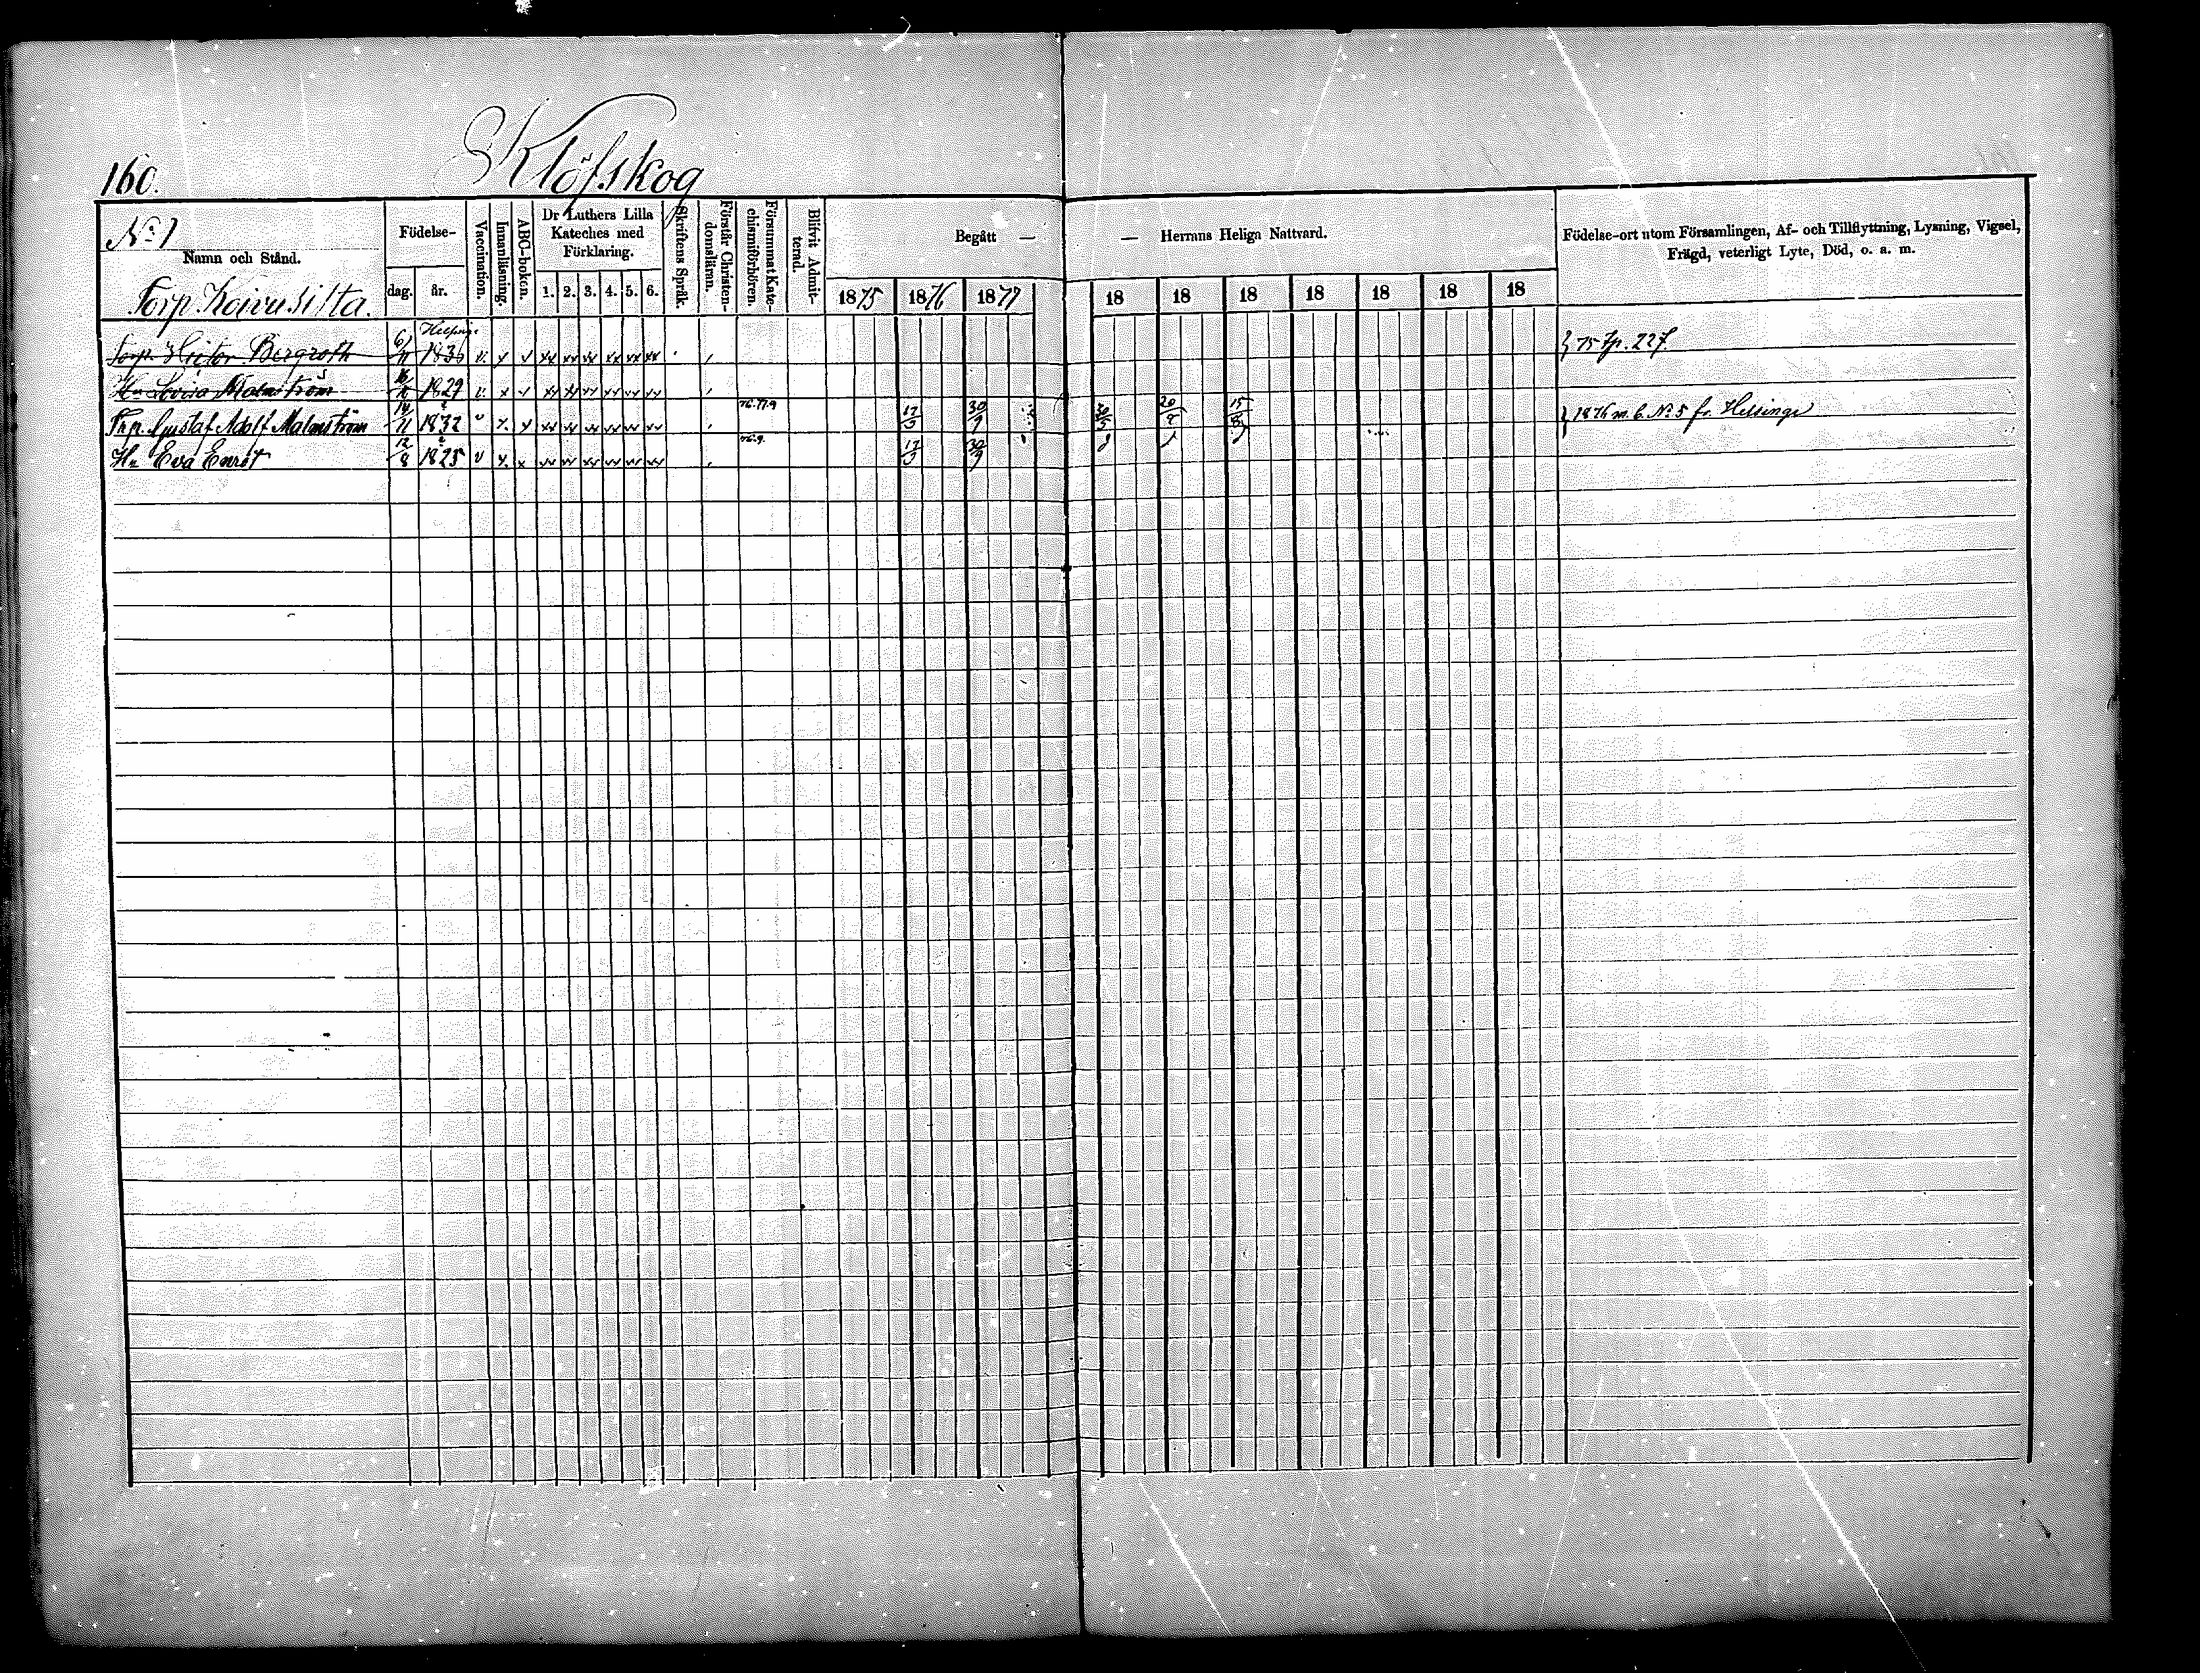 160.
Klöfskog
No 1
Namn och Stånd.
Födelse-
dag.
år.
Vaccination.
Innanläsning.
ABC-boken.
Dr Luthers Lilla
Kateches med
Förklaring.
1. 2. 3. 4. 5. 6.
Skriftens Språk.
Förstår Christen-
domslärnn.
Försummat Kate-
chismiförhören.
Blifvit Admit-
terad.
Begått —
— Herrans Heliga Nattvard.
1875 1876 1877
18 18 18 18 18 18 18
Födelse-ort utom Församlingen, Af- och Tillflyttning, Lysning, Vigsel,
Frägd, veterligt Lyte, Död, o. a. m.
Torp. Koivusilta.
Helsinge
Torp. Victor Bergroth 6/11 183 v. x v xx xx xx xx xx xx } 75 fp. 227.
Hu Lovisa Malmström 1829 v. x v xx xx xx xx xx xx
Trp. Gustaf Adolf Malmström 1832 v x x xx xx xx xx xx xx 76.77.9 30/9 20 15 } 1876 m. b. No 5 fr. Helsinge
Hu Eva Enrot 12/8 1825 v x x xx xx xx xx xx xx 76.9. 30/9